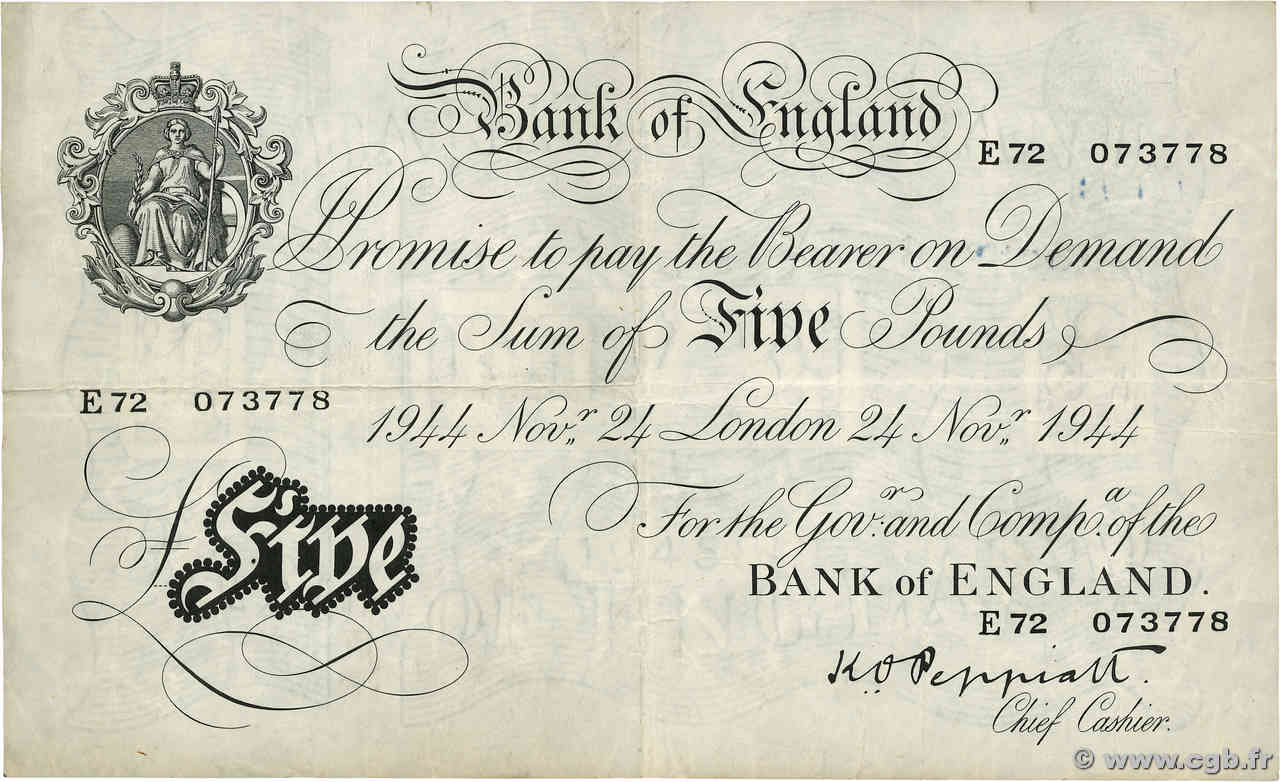 Bank of England
E72 073778
I Promise to pay the Bearer on Demand
the Sum of Five Pounds
E72 073778
1944 Nov.r 24 London 24 Nov.r 1944
£Five
For the Gov.r and Comp.a of the
BANK of ENGLAND.
E72 073778
K.O. Peppiatt.
Chief Cashier.
© www.cgb.fr